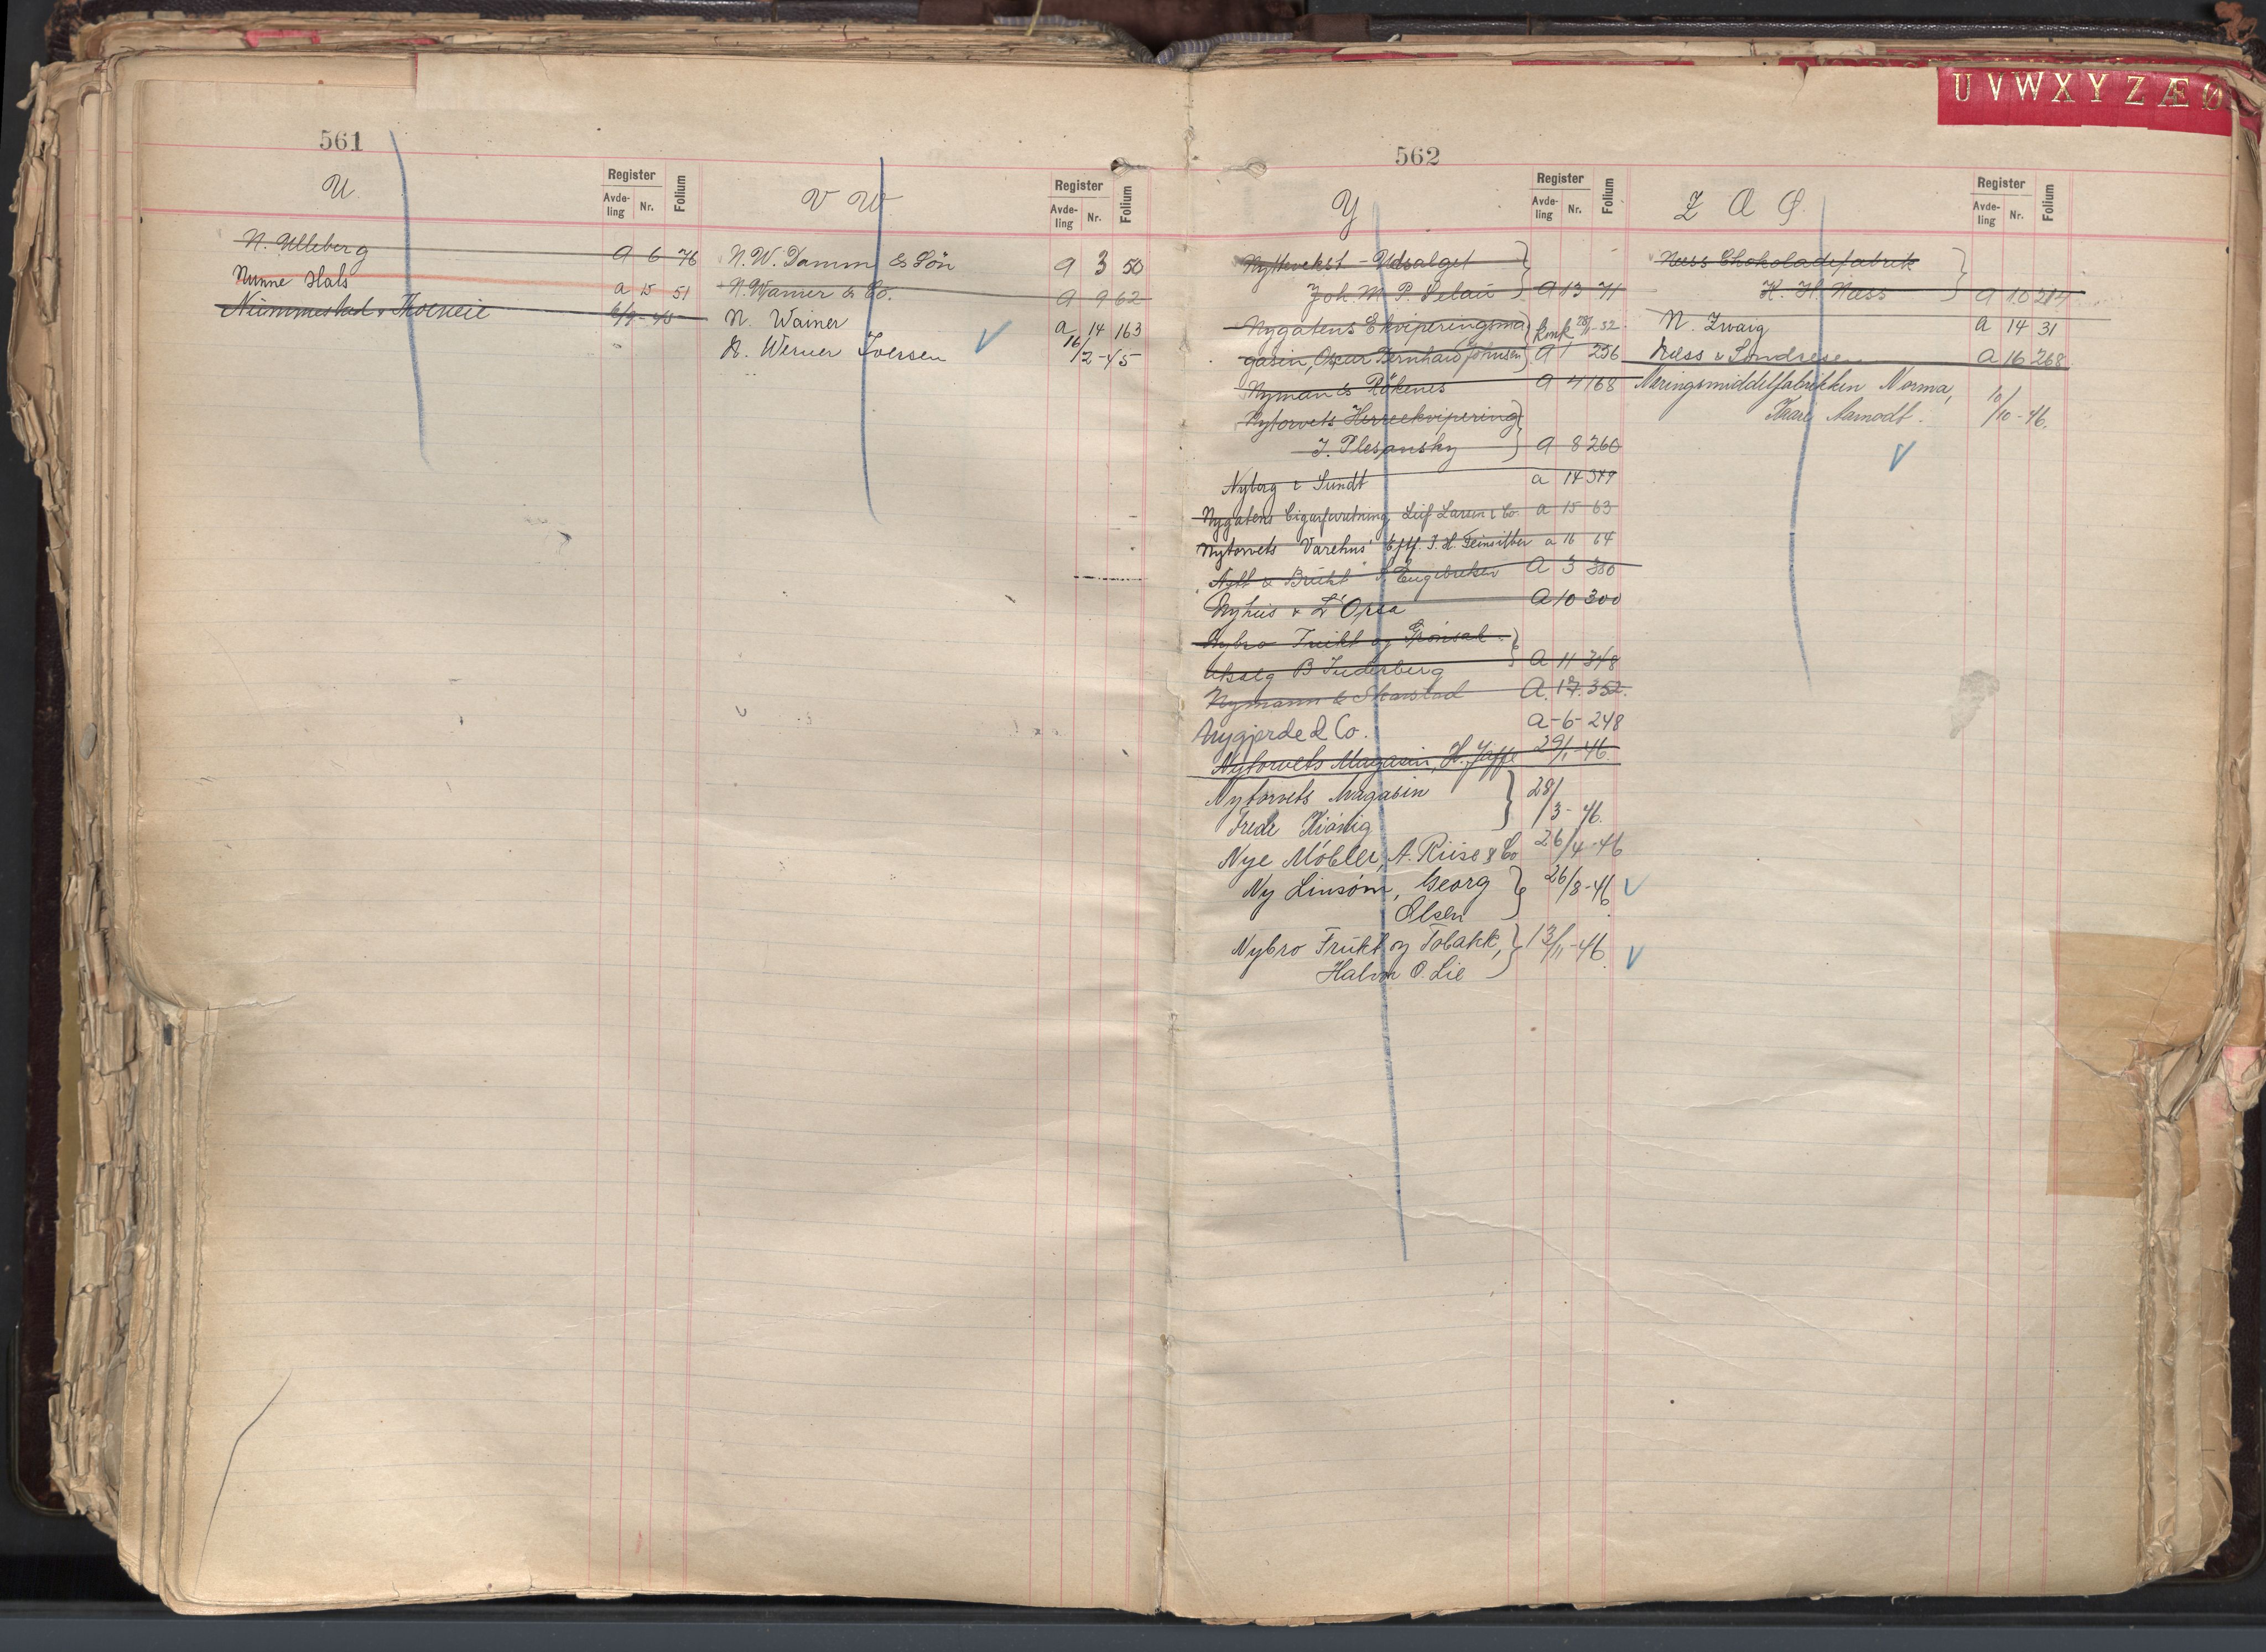 U V W X Y Z Æ Ø
561
U.
Register
Avde-
ling
Nr.
Folium
N. Ulleberg A 6 76
Nunne Hals a 15 51
Nummestad & 6/9-40
V W
Register
Avde-
ling
Nr.
Folium
N. W. Damm & Sön A 3 50
N. Warner & Co. A 9 62
N. Wainer a 14 163
N. Werner Iversen 16/2-45
562
Y
Register
Avde-
ling
Nr.
Folium
Nyttevekst-Udsalget
Joh. M. P. Selau A 13 71
Nygatens Ekviperingsma Konk 28/1-32.
gasin, Oscar Bernhard Johnsen A 1 256
Nyman & Rökenes A 4 168
Nytorvets Herreekvipering
J. Plesansky A 8 260
Nyberg & Sundt a 14 349
Nygatens Cigarforretning, Leif Larsen & Co. a 15 63
Nytorvets Varehus Eftf. J. H. Feinsilber a 16 64
Nytt & Brukt S. Engebretsen A 3 380
Nyhus & L'Orsa A 10 300
Nybro Frukt og Grönsak.
utsalg B Suderberg A 11 348
Nymann & Skarstad A. 17. 352.
Nygjerde & Co. a-6-248
Nytorvets Magasin, H. Jaffe 29/1-46
Nytorvets Magasin 28/
Frede 3-46.
Nye Möbler, A. Riise & Co 26/4-46
Ny Linsöm, Georg 26/8-46
Olsen
Nybro Frukt og Tobakk, 13/11-46
Halvor O. Lie
Z Æ Ø.
Register
Avde-
ling
Nr.
Folium
Næss Chokoladefabrik
K. H. Næss A 10 214
N. Zwaig a 14 31
Næss & Sondresen A 16 268
Næringsmiddelfabrikken Norma, 10/
Kaare Aamodt. 10-46.